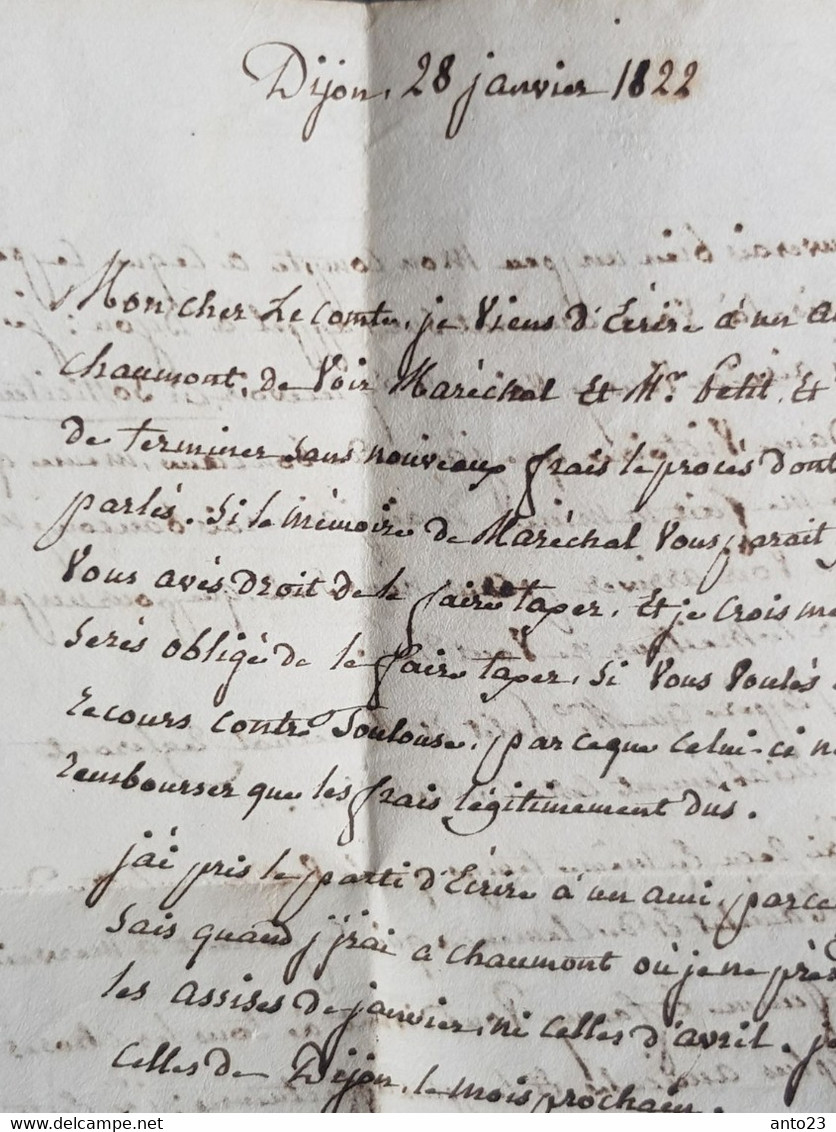 Dijon, 28 janvier 1822
Mon cher Lecomte, je Viens d'Ecrire à un a
chaumont, de Voir Maréchal Et Mr. Petit, Et
de terminer sans nouveaux frais le procès dont
parlés. Si le mémoire de Maréchal Vous parait
Vous avés droit de le faire taxer, Et je crois me
serés obligé de le faire taxer, si Vous Voulés
Recours contre Toulouse, parceque celui-ci n
Rembourser que les frais légitimement dûs.
j'ai pris le parti d'Ecrire à un ami, parce
sais quand j'irai à chaumont où je ne prés
les assises de janvier, ni celles d'avril. je
celles de Dijon, le mois prochain.
www.delcampe.net
anto23